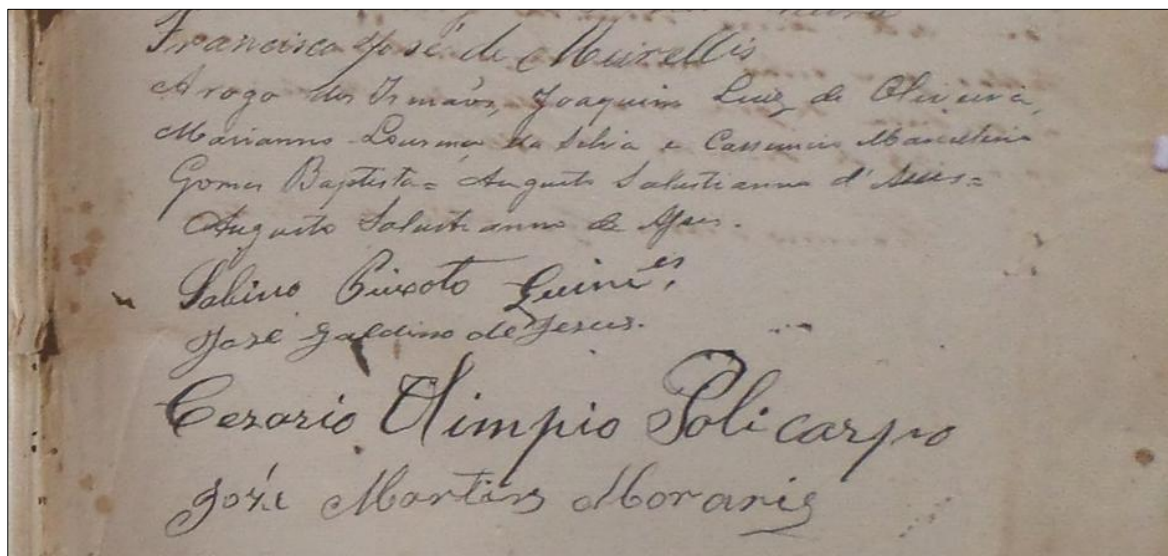 Francisco José de Meirellis
Arogo dos Irmãos, Joaquim Luiz de Oliveira,
Marianno Lourenço da Silva e Cassemiro Marcelino
Gomes Baptista= Augusto Salustianno d'Assis=
Augusto Salustianno de Assis.
Sabino Peixoto Guim.es,
José Galdino de Jesus.
Cezario Olimpio Policarpo
José Martins Moraris